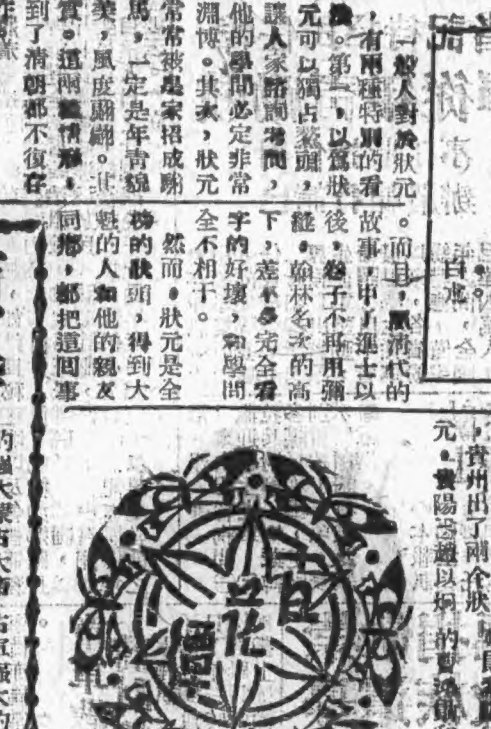 白水
一般人對於狀元
，有兩種特別的看
法。第一，以爲狀
元可以獨占鰲頭，
讓人家諮詢考問，
他的學問必定非常
淵博。其次，狀元
常常被皇家招成駙
馬，一定是年青貌
美，風度翩翩。其
實。這兩種情形，
到了清朝都不復存
。而且，照清代的
故事，中了進士以
後，卷子不再用彌
縫，翰林名次的高
下，差不多完全看
字的好壞，和學問
全不相干。
然而，狀元是全
榜的狀頭，得到大
魁的人和他的親友
同鄉，都把這回事
，貴州出了兩个狀
元，貴陽趙以炯
百花